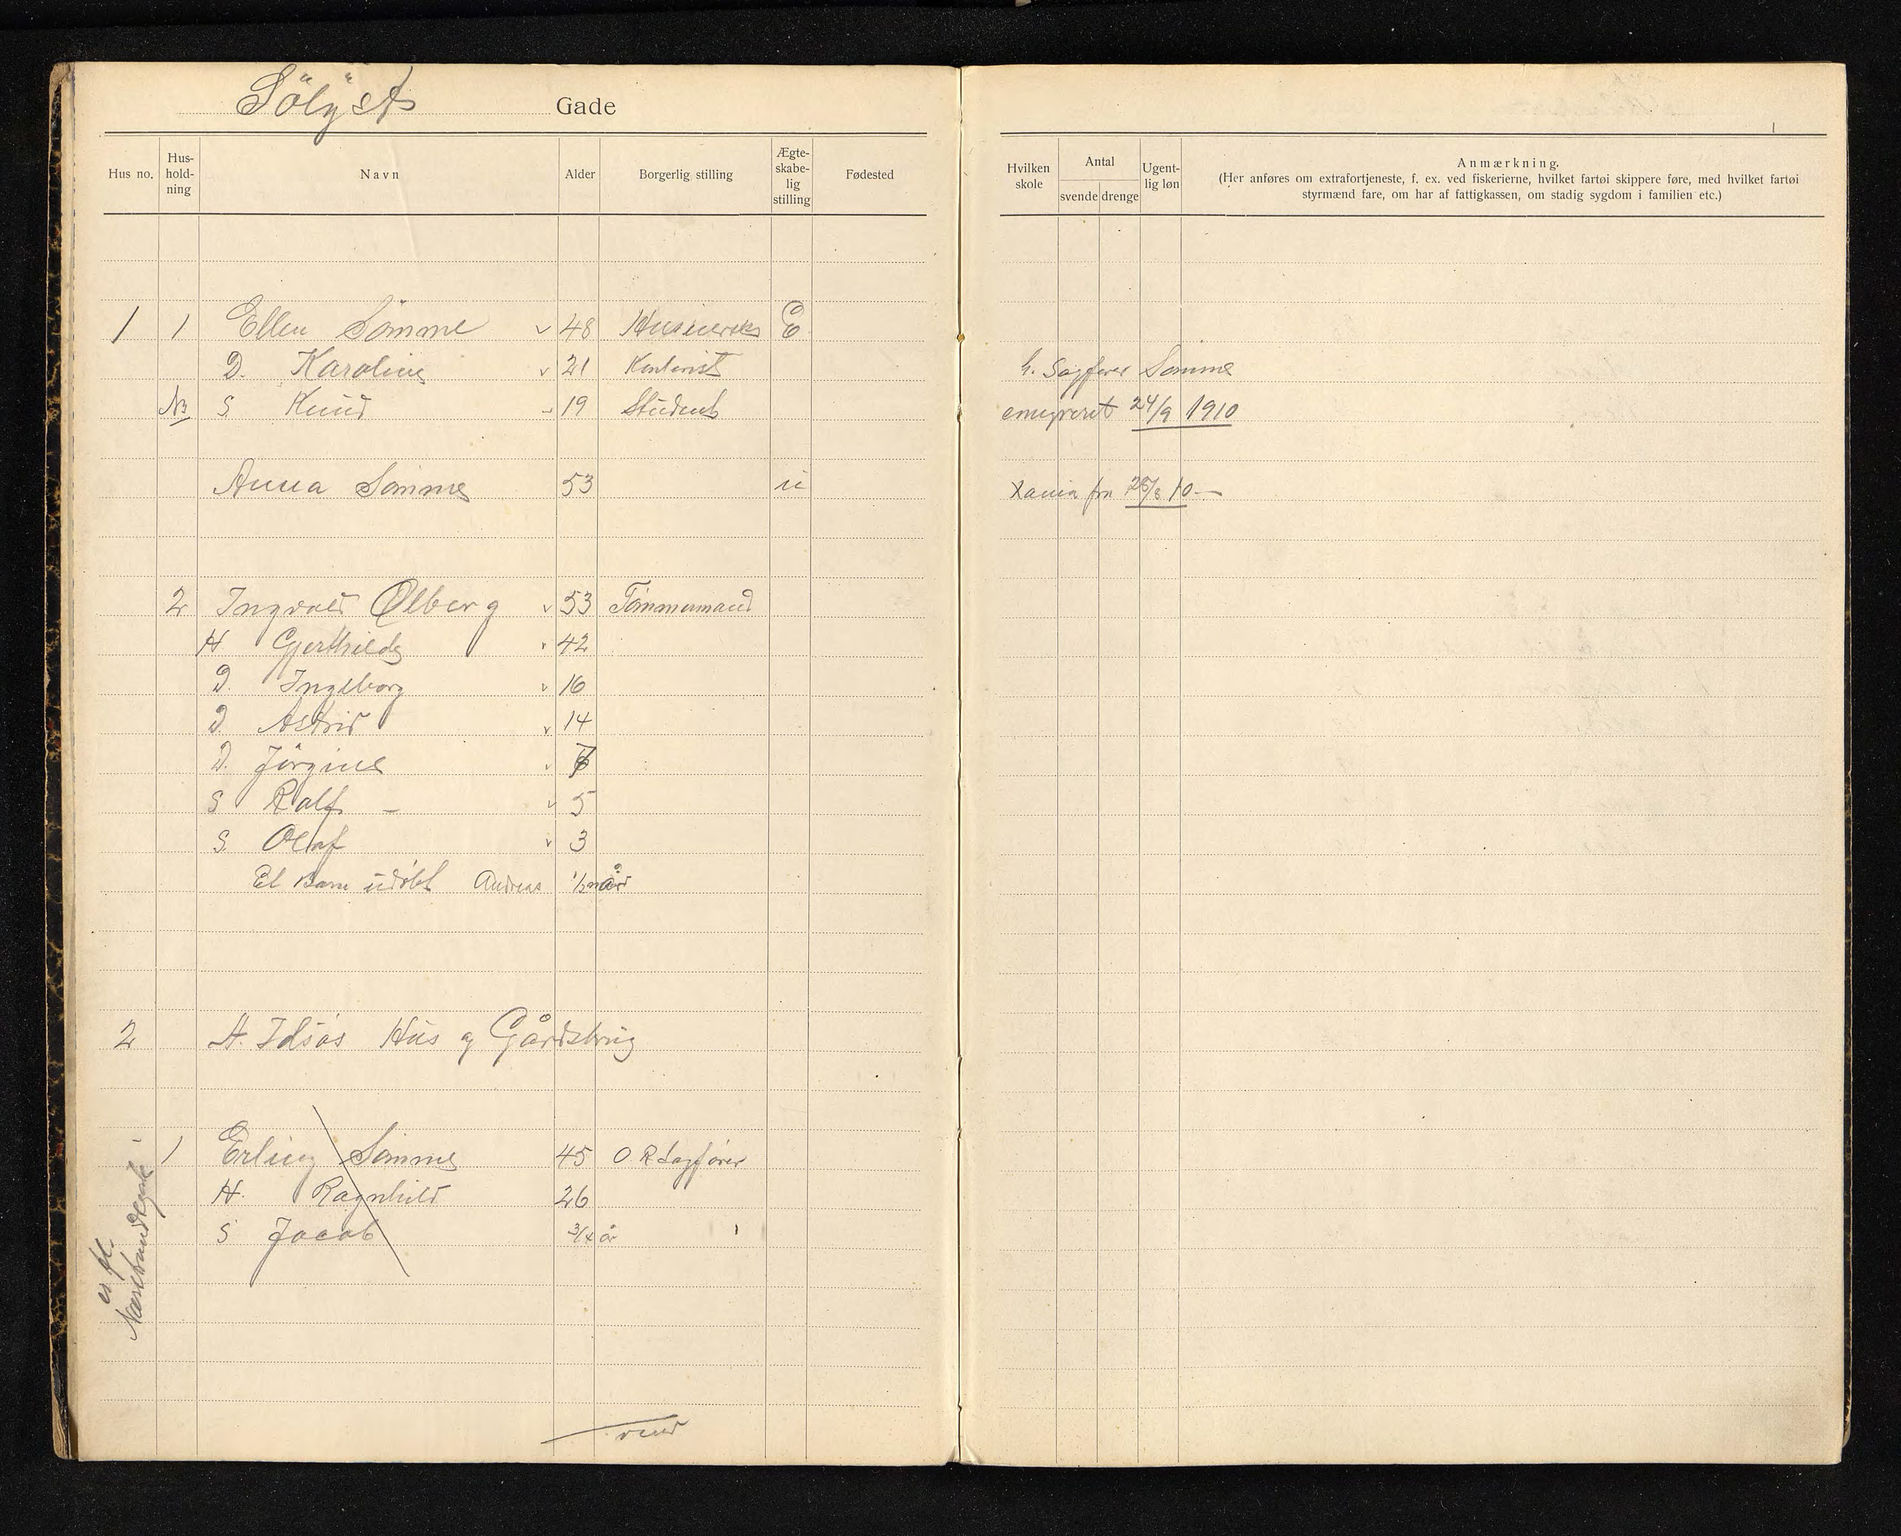 Sölyst Gade
Hus no. Hus-hold-ning Navn Alder Borgerlig stilling Ægte-skabe-lig stilling Fødested
1 1 Ellen Sömme 48 E
D. Karoline 21 Kontorist
NB S Knud 19 Student
Anna Sömme 53 u
2 Ingvald Ølberg 53 Tømmermand
H Gjerthilde 42
D. Ingeborg 16
D. Astrid 14
D. Jörgine
S Ralf – 5
S. Olaf 3
Et Barn udøbt Andreas 1/2 år
2 A. Idsøs Hus og Gårdsbrug
1 Erling Sömme 45 O. R Sagfører
H. Ragnhild 26
S Jacob 3/4 år
er fl.
Nærstrandsgate
vend
Hvilken skole Antal svende drenge Ugent-lig løn Anmærkning.
(Her anføres om extrafortjeneste, f. ex. ved fiskerierne, hvilket fartøi skippere føre, med hvilket fartøi
styrmænd fare, om har af fattigkassen, om stadig sygdom i familien etc.)
h. Sagfører Sömme
emigreret 24/9 1910
Xania fra 28/8 10 —